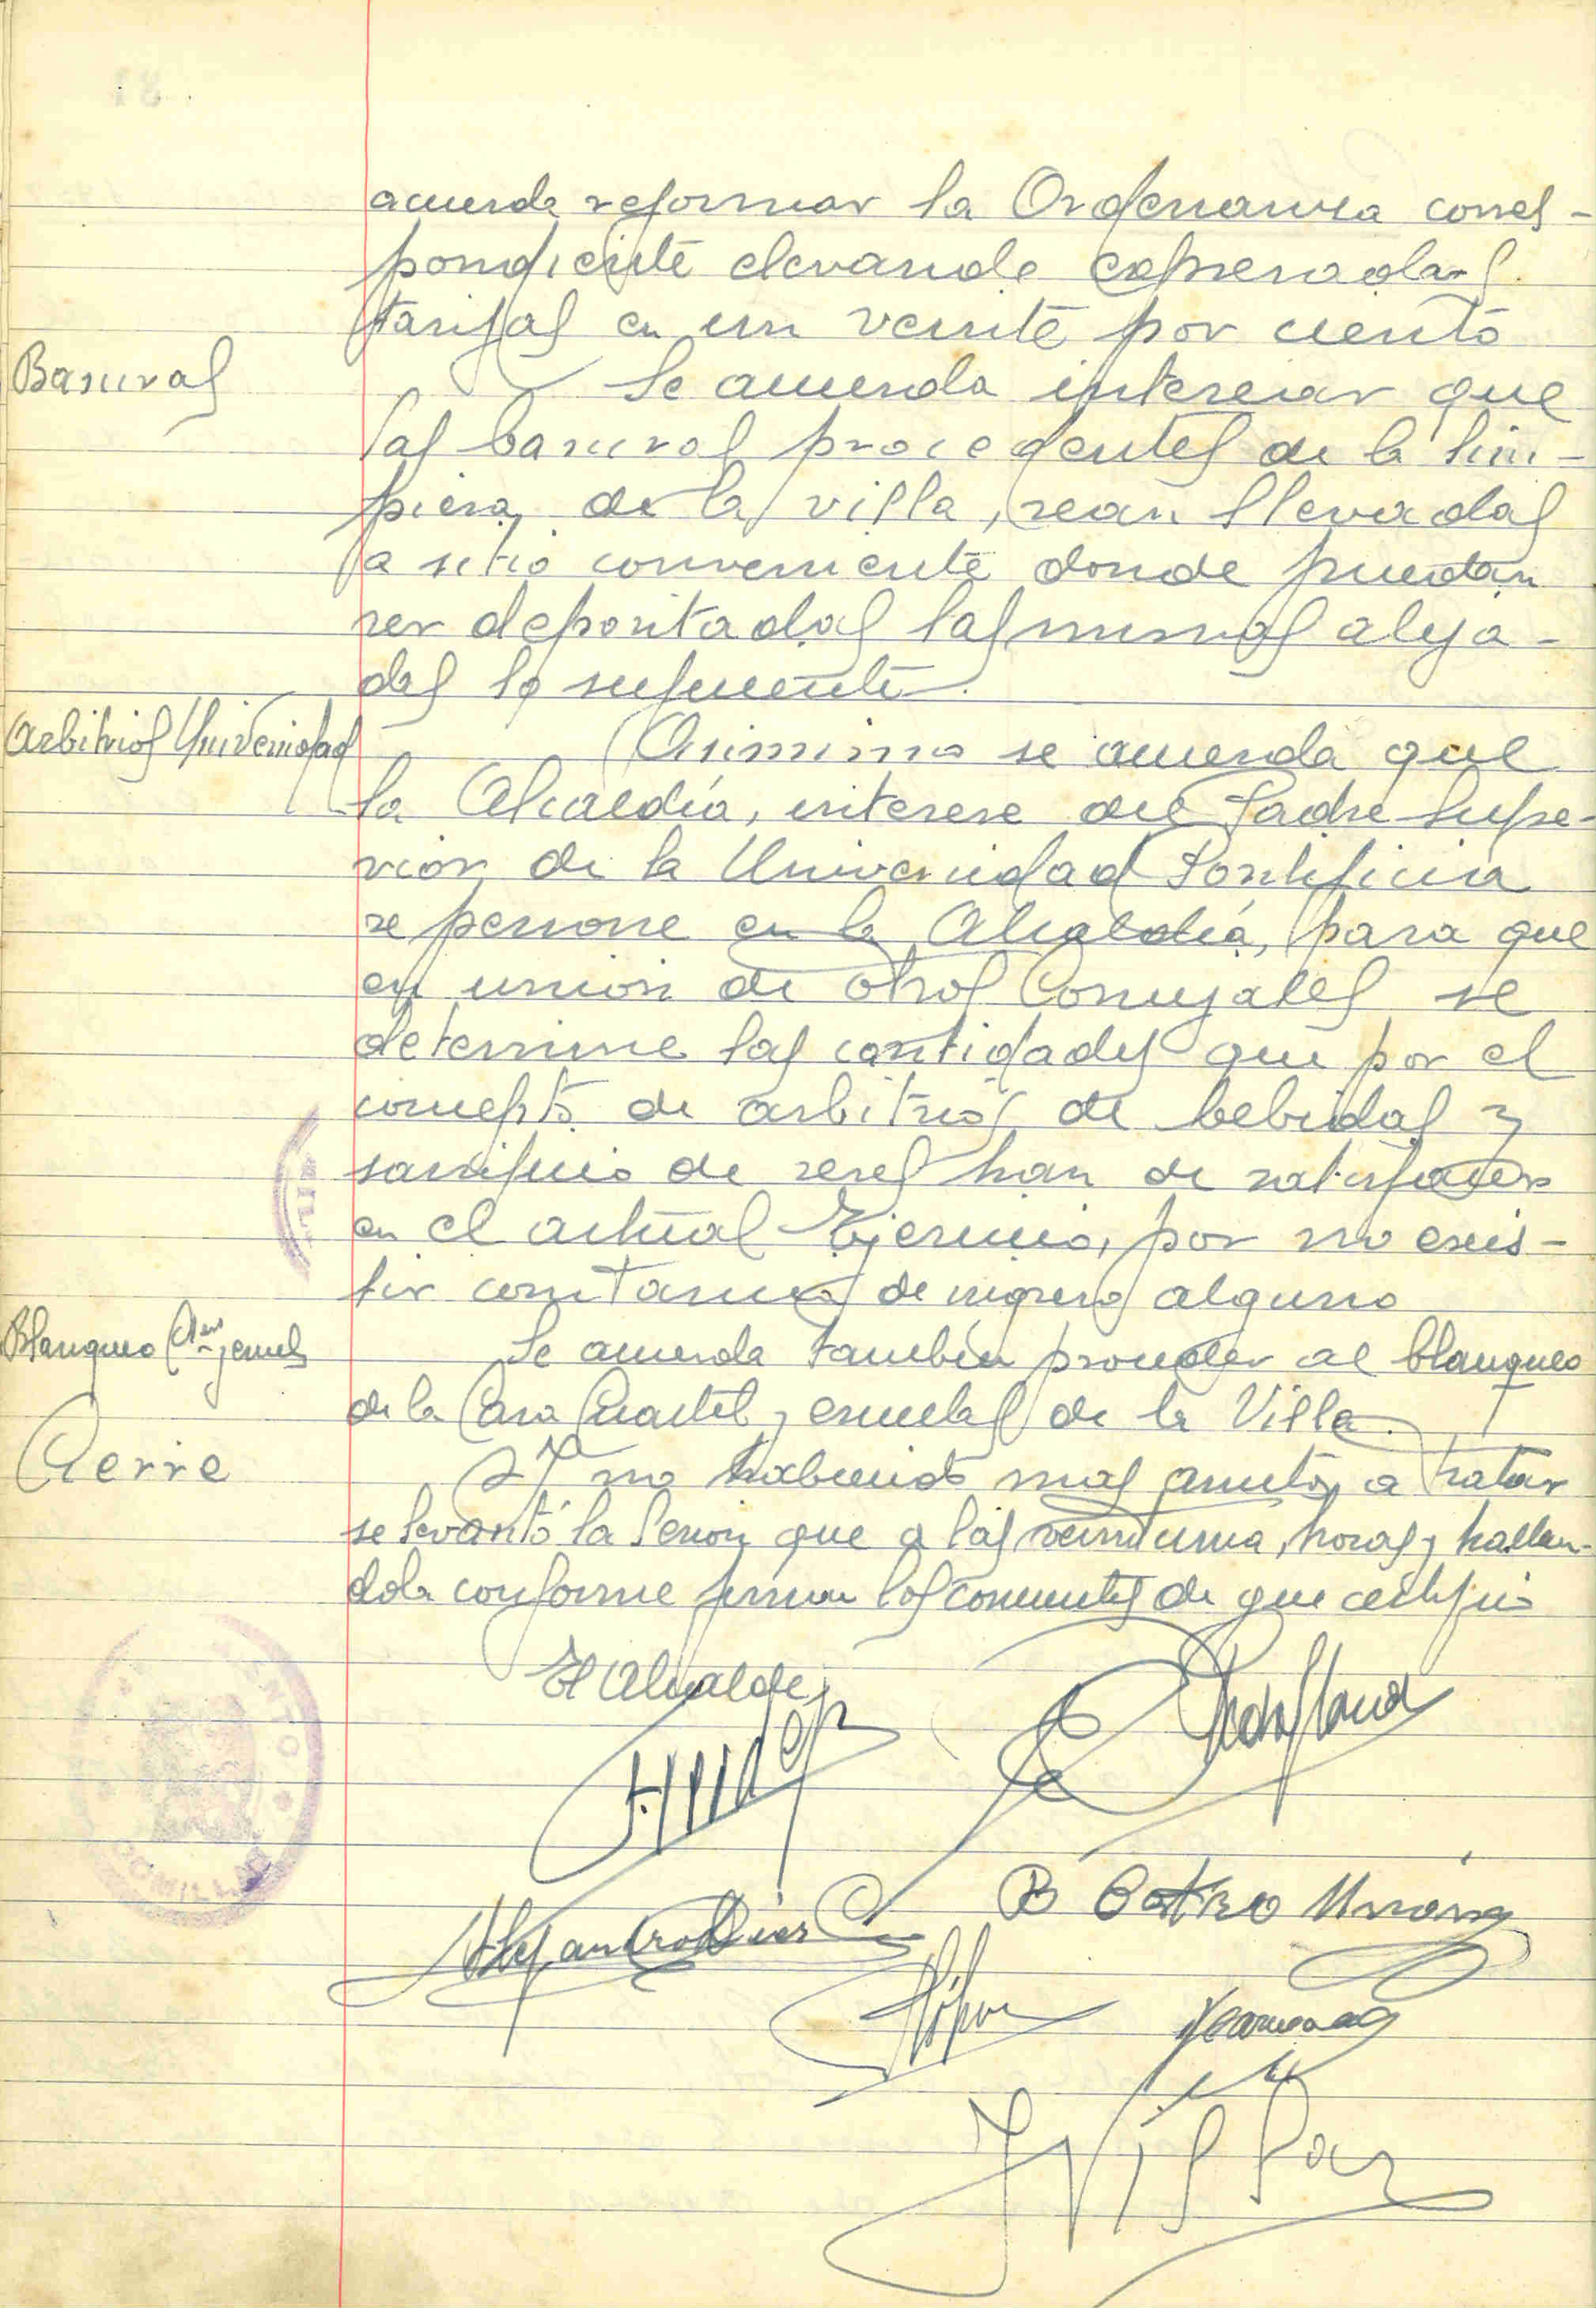 acuerda reformar la Ordenanza corres-
pondiente elevando expresadas
tarifas en un veinte por ciento
Basuras
Se acuerda interesar que
las basuras procedentes de la lim-
pieza de la villa, sean llevadas
a sitio conveniente donde puedan
ser depositadas las mismas aleja-
das lo suficiente.
Arbitrios Universidad
Asimismo se acuerda que
la Alcaldía, interese del Padre Supe-
rior de la Universidad Pontificia
se persone en la Alcaldía, para que
en unión de otros Concejales se
determine las cantidades que por el
concepto de arbitrios de bebidas y
sacrificio de reses han de satisfacer
en el actual Ejercicio, por no exis-
tir constancia de ingreso alguno
Blanqueo Ctel y escuelas
Se acuerda también proceder al blanqueo
de la Casa Cuartel y escuelas de la Villa.
Cierre
Y no habiendo mas asuntos a tratar
se levantó la Sesión que a las veintiuna horas y hallan-
dola conforme firman los concurrentes de que certifico
El Alcalde,
Alejandro Díaz
B Castro
JVillar
COMILLAS